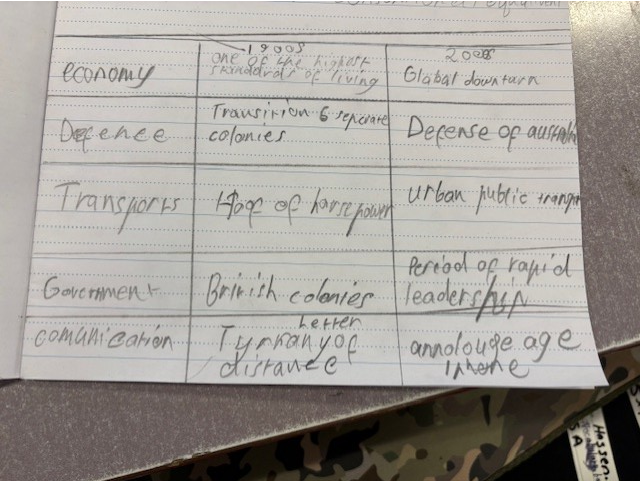 1900s
2000s
economy
one of the highest
standards of living
Global downturn
Defence
Transition 6 seperate
colonies
Defense of australia
Transports
of horsepower
urban public
Government
British colonies
Period of rapid
leadership
comunication
Letter
Tyrranyof
distance
annalouge age
iphone